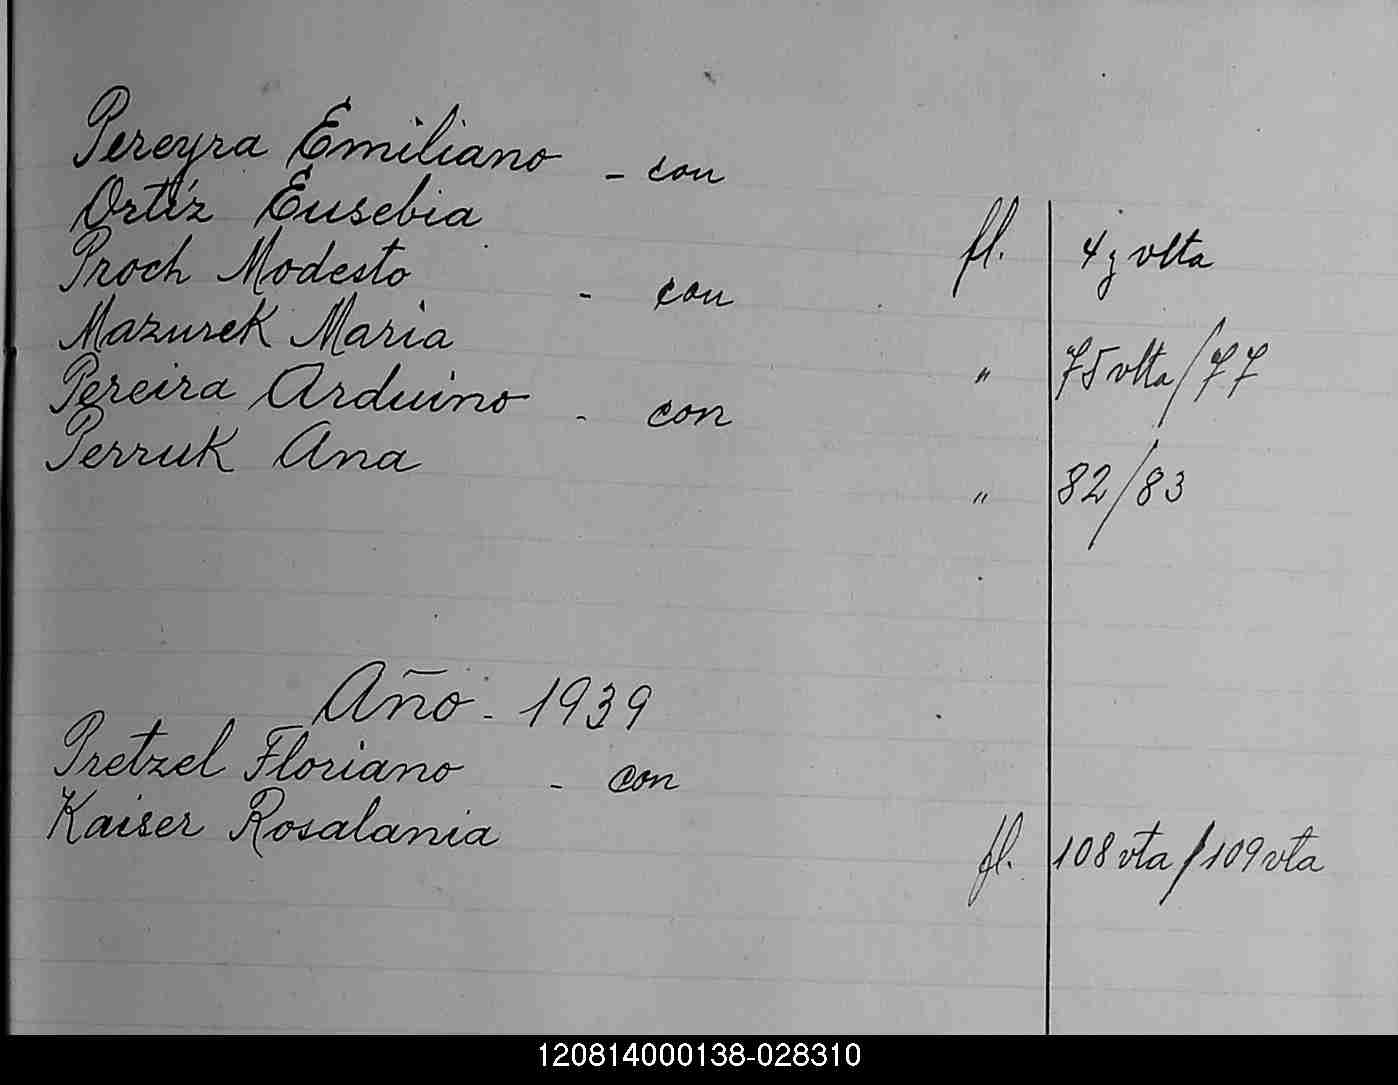 Pereyra Emiliano - con
Ortíz Eusebia fl. 4 y vlta
Proch Modesto - con
Mazurek Maria " 75 vlta/77
Pereira Arduino - con
Perruk Ana " 82/83
Año - 1939
Pretzel Floriano - con
Kaiser Rosalania fl. 108 vta/109 vta
120814000138-028310